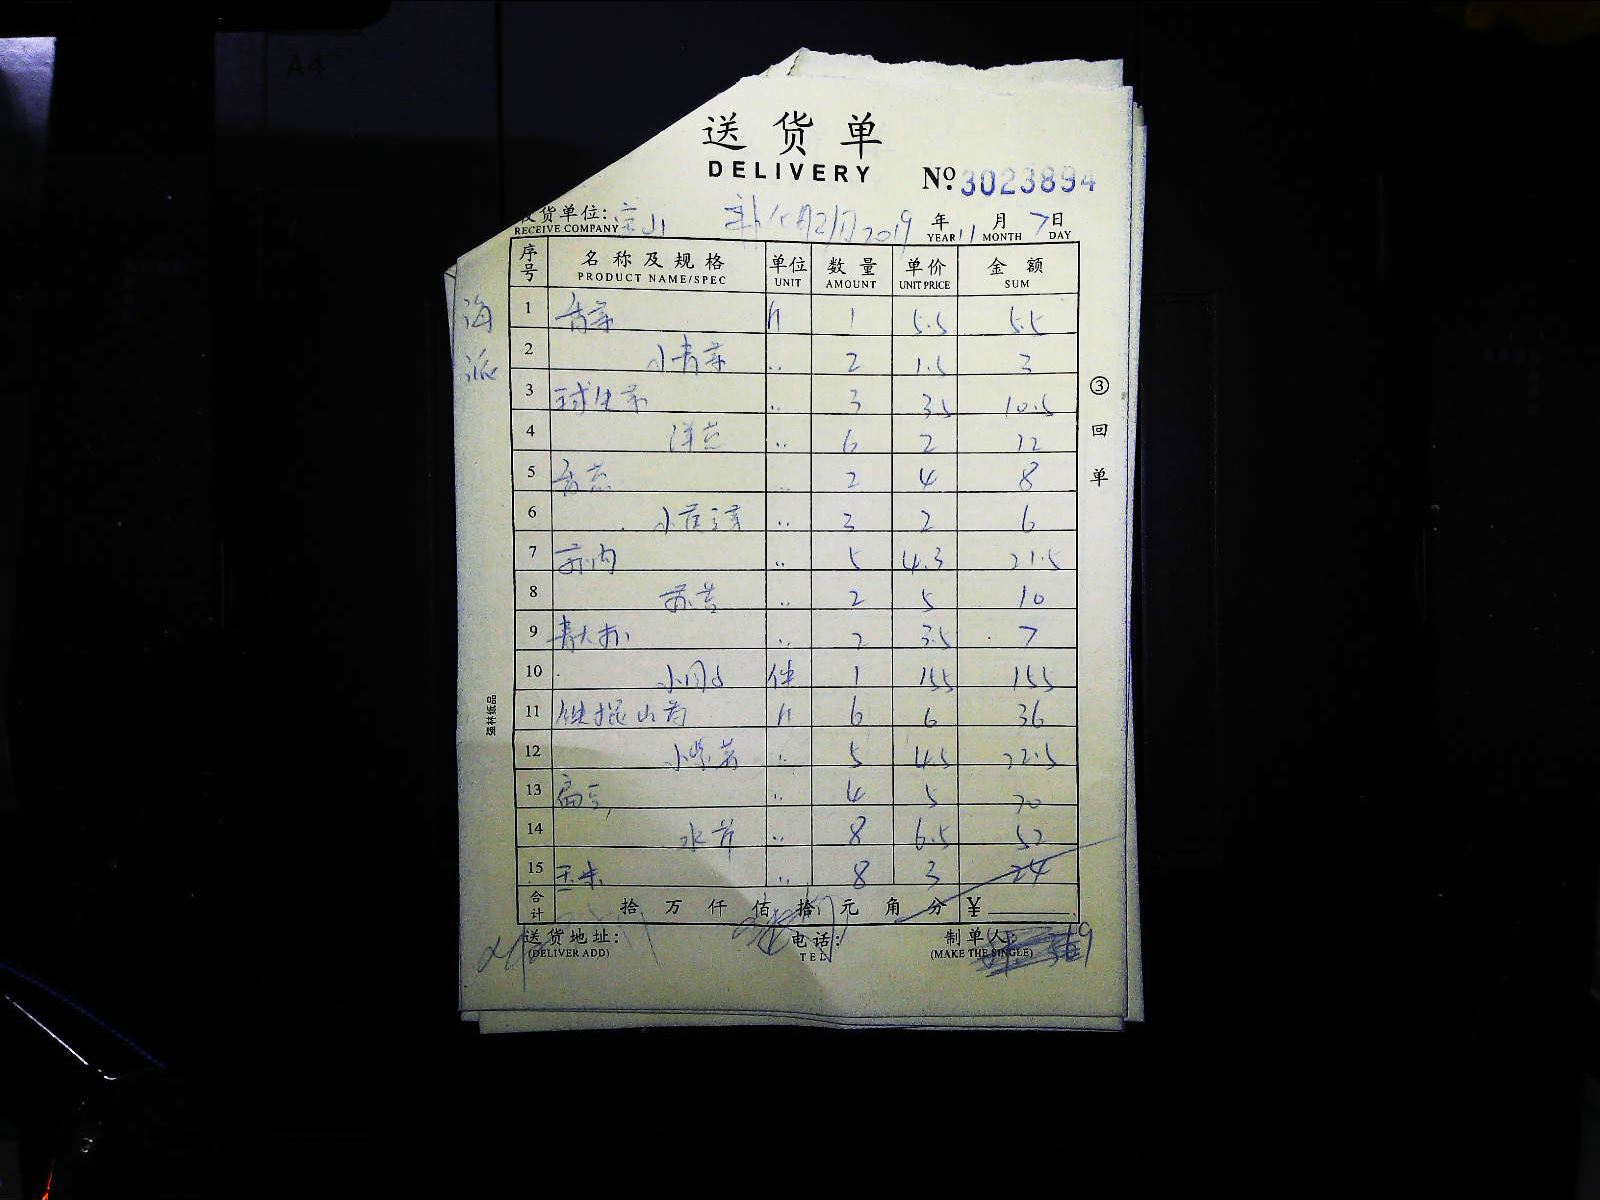 A4
送货单
DELIVERY
No. 3023894
收货单位: 宝山 2019 年 11 月 7 日
RECEIVE COMPANY YEAR MONTH DAY
序号 名称及规格 单位 数量 单价 金额
PRODUCT NAME/SPEC UNIT AMOUNT UNIT PRICE SUM
海派
1 香菜 斤 1 5.5 5.5
2 小青菜 .. 2 1.5 3
3 球生菜 .. 3 3.5 10.5
4 洋葱 .. 6 2 12
5 香葱 .. 2 4 8
6 .. 3 2 6
7 .. 5 4.3 21.5
8 .. 2 5 10
9 青大 .. 2 3.5 7
10 件 1 155 155
11 铁棍山药 斤 6 6 36
12 小紫薯 .. 5 4.5 22.5
13 扁豆 .. 4 5 20
14 水芹 .. 8 6.5 52
15 玉米 .. 8 3 24
合计 拾 万 仟 佰 拾 元 角 分 ¥
送货地址: 电话: 制单人:
(DELIVER ADD) TEL (MAKE THE SINGLE)
③回单
强林纸品